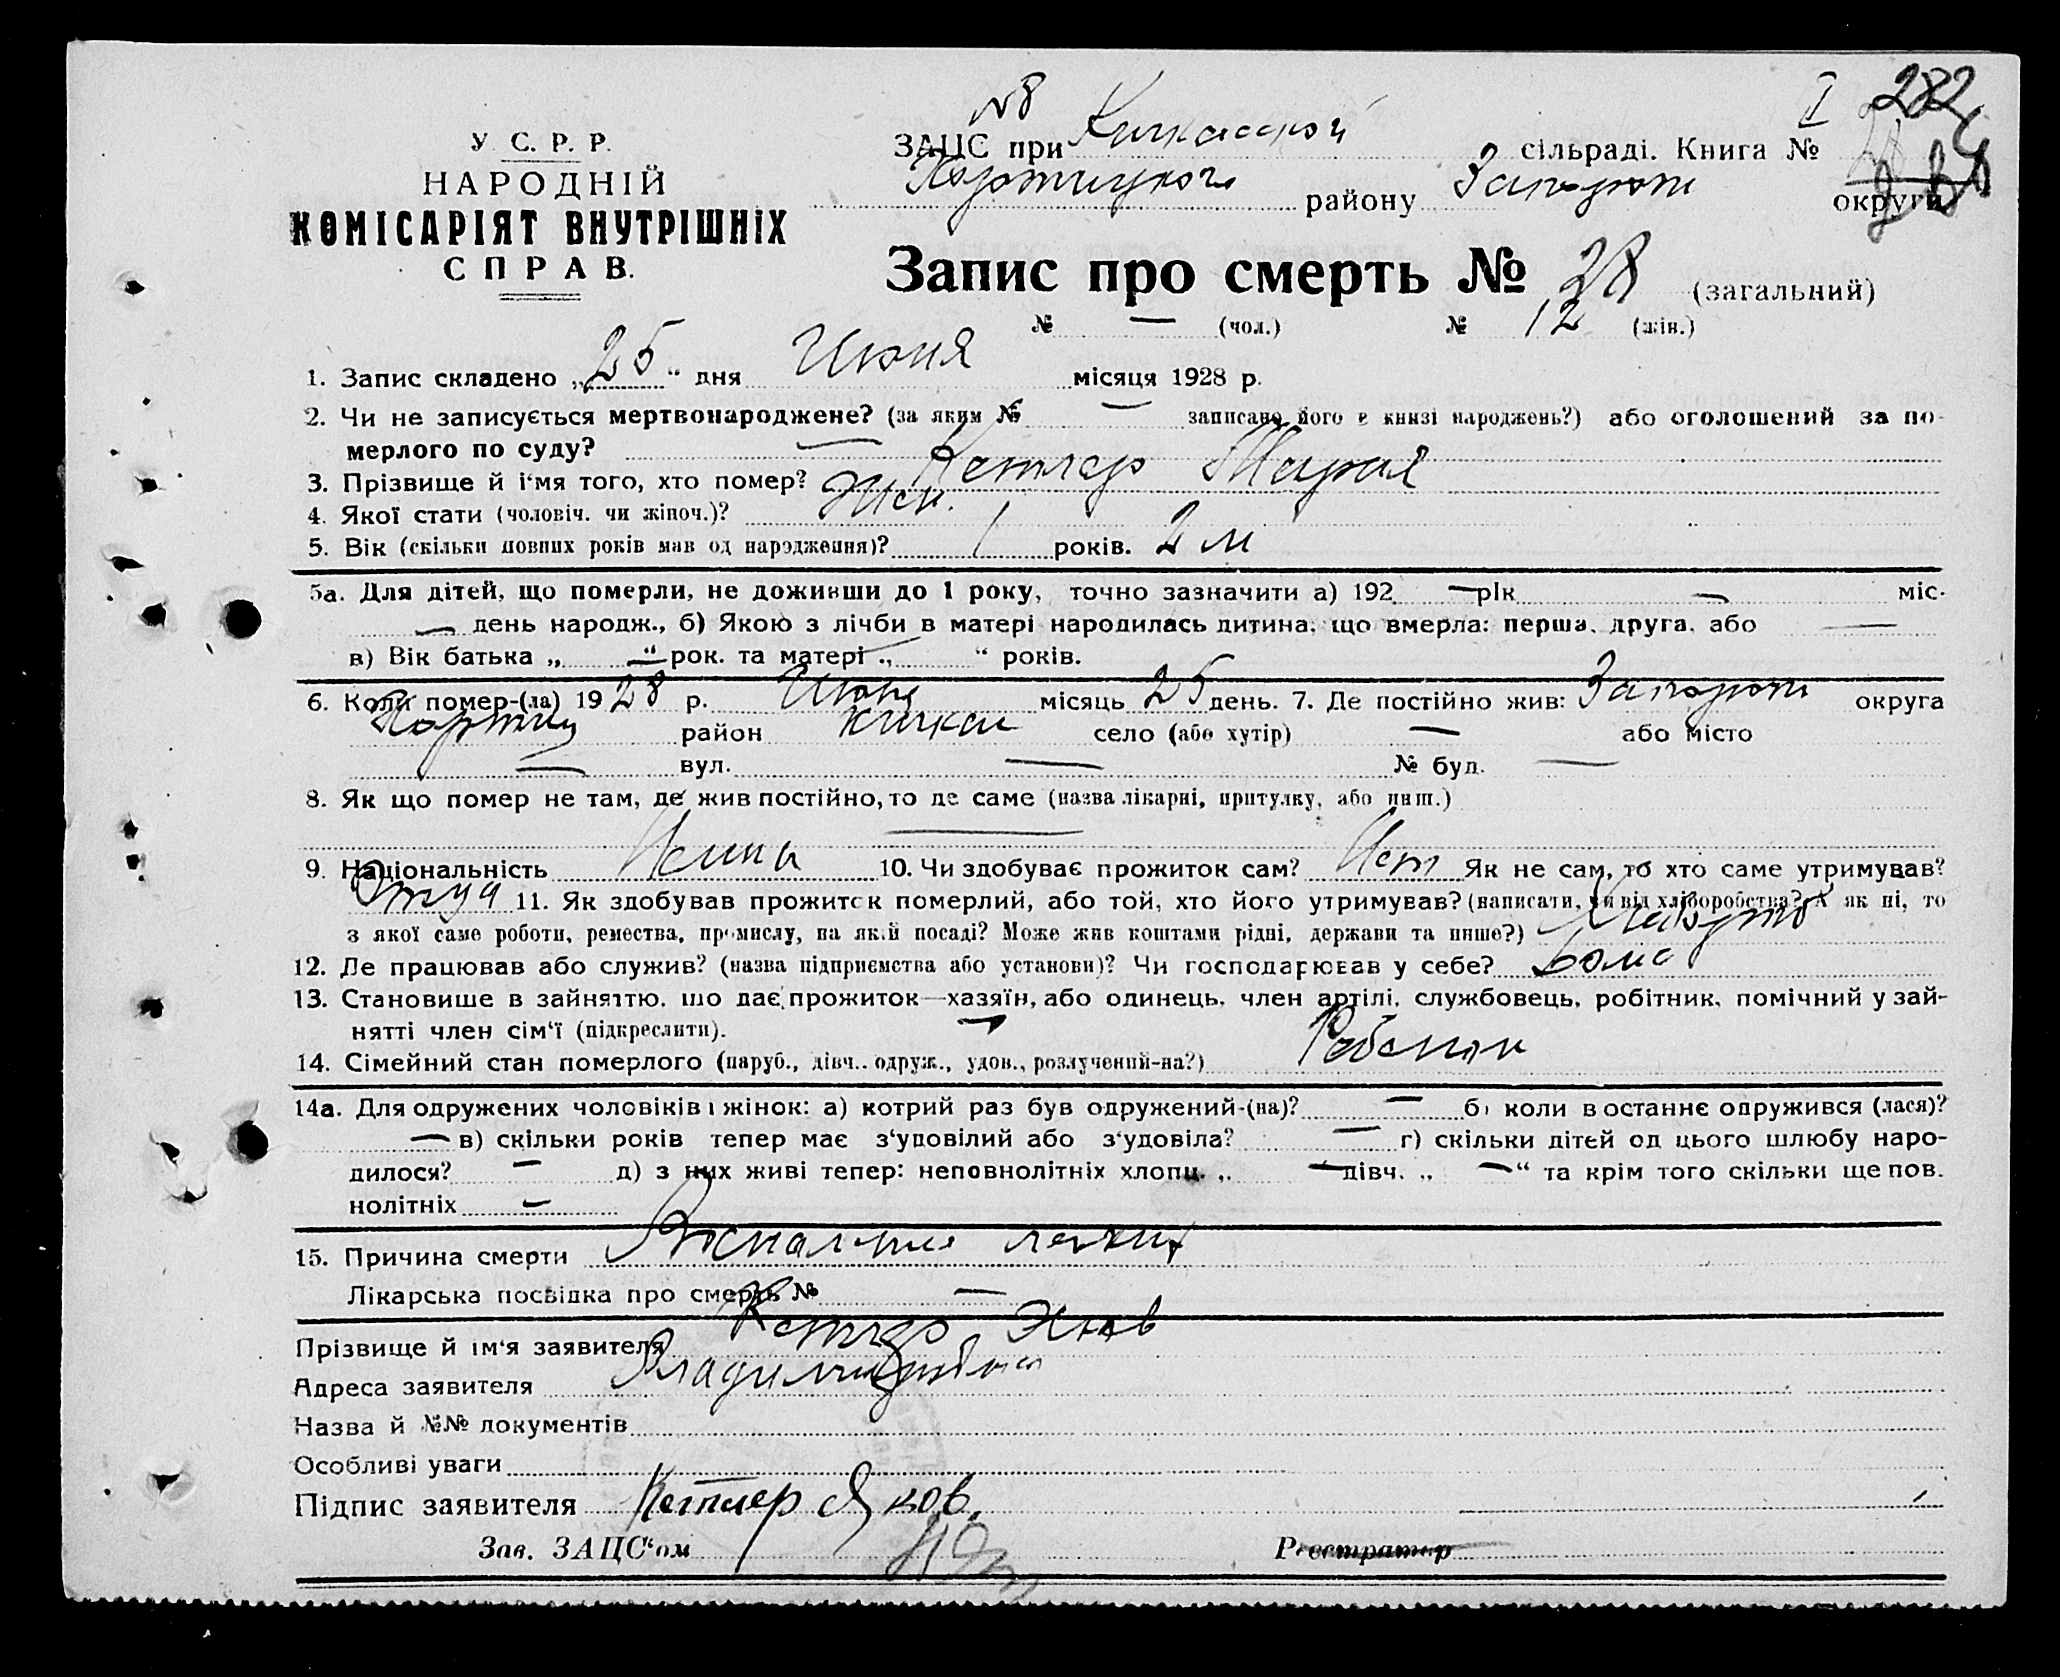 У. С. Р. Р.
НАРОДНІЙ
КОМІСАРІЯТ ВНУТРІШНІХ
СПРАВ.
№8
I 282
ЗАЦС при Кичкасской сільраді. Книга №
Хортицкого району Запорож округи
Запис про смерть № 28 (загальний)
№ — (чол.) № 12 (жін.)
1. Запис складено „25“ дня Июня місяця 1928 р.
2. Чи не записується мертвонароджене? (за яким № — записано його в книзі народжень?) або оголошений за по-
мерлого по суду? —
3. Прізвище й і‘мя того, хто помер? Кетлер Мария
4. Якої стати (чоловіч. чи жіноч.)? Жен.
5. Вік (скільки повних років мав од народження)? 1 років. 2 м
5а. Для дітей, що померли, не доживши до 1 року, точно зазначити а) 192 — рік — міс.
— день народж., б) Якою з лічби в матері народилась дитина, що вмерла: перша, друга, або —
в) Вік батька „ — “ рок. та матері „ — “ років.
6. Коли помер-(ла) 1928 р. Июня місяць 25 день. 7. Де постійно жив: Запорож округа
Хортиц район Кичкас село (або хутір) — або місто
— вул. — № буд. —
8. Як що помер не там, де жив постійно, то де саме (назва лікарні, притулку, або инш.)
—
9. Національність Немка 10. Чи здобуває прожиток сам? Нет Як не сам, то хто саме утримував?
Отца 11. Як здобував прожиток померлий, або той, хто його утримував? (написати, чи від хліборобства? А як ні, то
з якої саме роботи, ремества, промислу, на якій посаді? Може жив коштами рідні, держави та инше?)
12. Де працював або служив? (назва підприємства або установи)? Чи господарював у себе? Дома
13. Становище в зайняттю, що дає прожиток—хазяїн, або одинець, член артілі, службовець, робітник, помічний у зай-
нятті член сім‘ї (підкреслити). —
14. Сімейний стан померлого (паруб., дівч.. одруж., удов., розлучений-на?) Ребенок
14а. Для одружених чоловіків і жінок: а) котрий раз був одружений-(на)? — б) коли в останнє одружився (лася)?
— в) скільки років тепер має з‘уповілий або з‘удовіла? — г) скільки дітей од цього шлюбу наро-
дилося? — д) з них живі тепер: неповнолітніх хлопц. „ — дівч. „ — “ та крім того скільки ще пов.
нолітніх —
15. Причина смерти Воспаление легких
Лікарська посвідка про смерть № —
Прізвище й ім‘я заявителя Кетлер Яков
Адреса заявителя
Назва й №№ документів
Особливі уваги
Підпис заявителя Кетлер Яков.
Зав. ЗАЦС‘ом Реєстратор